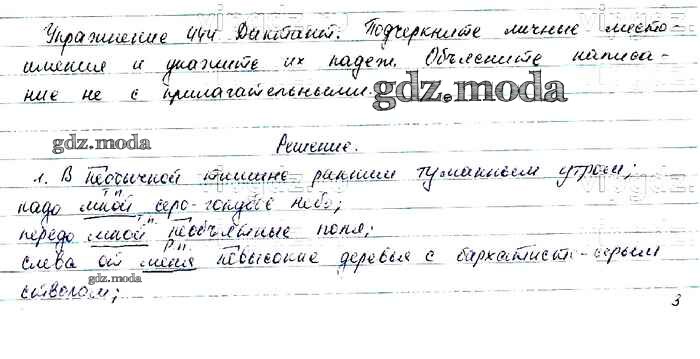 Упражнение 444 Диктант. Подчеркните личные место-
имения и укажите их падеж. Объясните написа-
ние не с прилагательными.
gdz.moda
gdz.moda
Решение.
1. В необычной тишине ранним туманным утром;
Т п
надо мной серо-голубое небо;
Т п
передо мной необъятные поля;
Р п
слева от меня невысокие деревья с бархатисто-серым
gdz.moda
стволом;
3